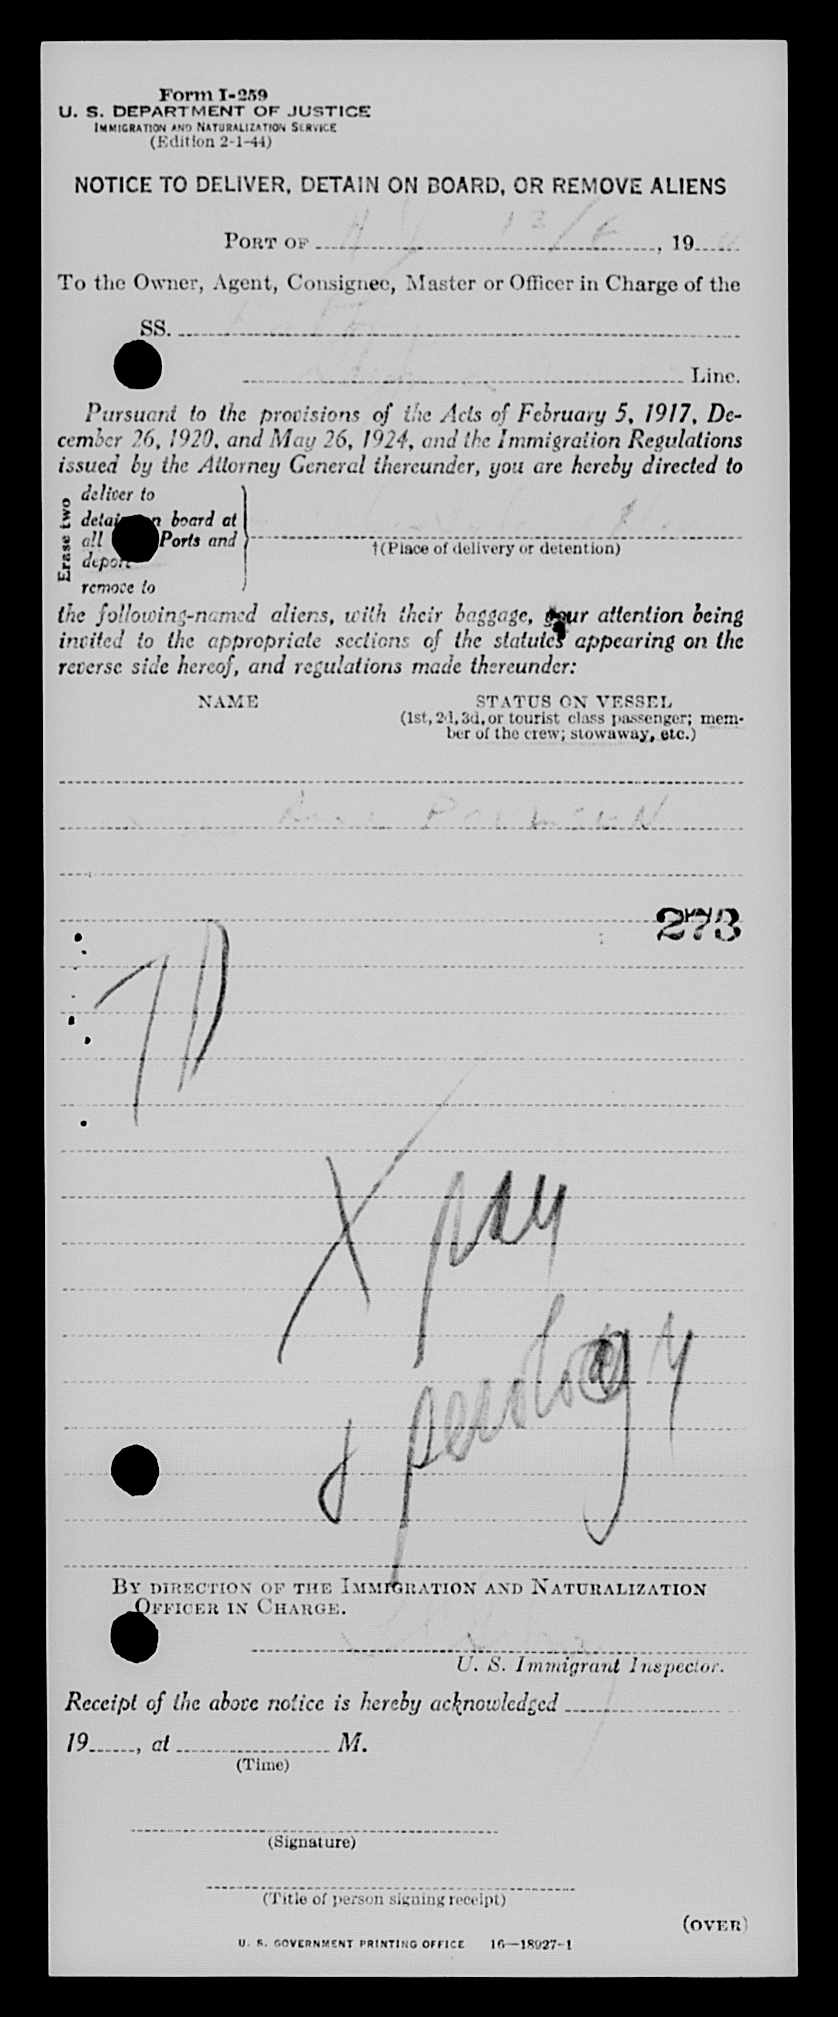 Form I-259
U. S. DEPARTMENT OF JUSTICE
IMMIGRATION AND NATURALIZATION SERVICE
(Edition 2-1-44)
NOTICE TO DELIVER, DETAIN ON BOARD, OR REMOVE ALIENS
PORT OF N Y 12/ , 19
To the Owner, Agent, Consignee, Master or Officer in Charge of the
SS.
Line.
Pursuant to the provisions of the Acts of February 5, 1917, De-
cember 26, 1920, and May 26, 1924, and the Immigration Regulations
issued by the Attorney General thereunder, you are hereby directed to
Erase two
deliver to
detain on board at
all Ports and
deport
remove to
†(Place of delivery or detention)
the following-named aliens, with their baggage, your attention being
invited to the appropriate sections of the statutes appearing on the
reverse side hereof, and regulations made thereunder:
NAME STATUS ON VESSEL
(1st, 2d, 3d, or tourist class passenger; mem-
ber of the crew; stowaway, etc.)
273
TD
X pay
&
BY DIRECTION OF THE IMMIGRATION AND NATURALIZATION
OFFICER IN CHARGE.
U. S. Immigrant Inspector.
Receipt of the above notice is hereby acknowledged
19 , at M.
(Time)
(Signature)
(Title of person signing receipt)
(OVER)
U. S. GOVERNMENT PRINTING OFFICE 16—18927-1